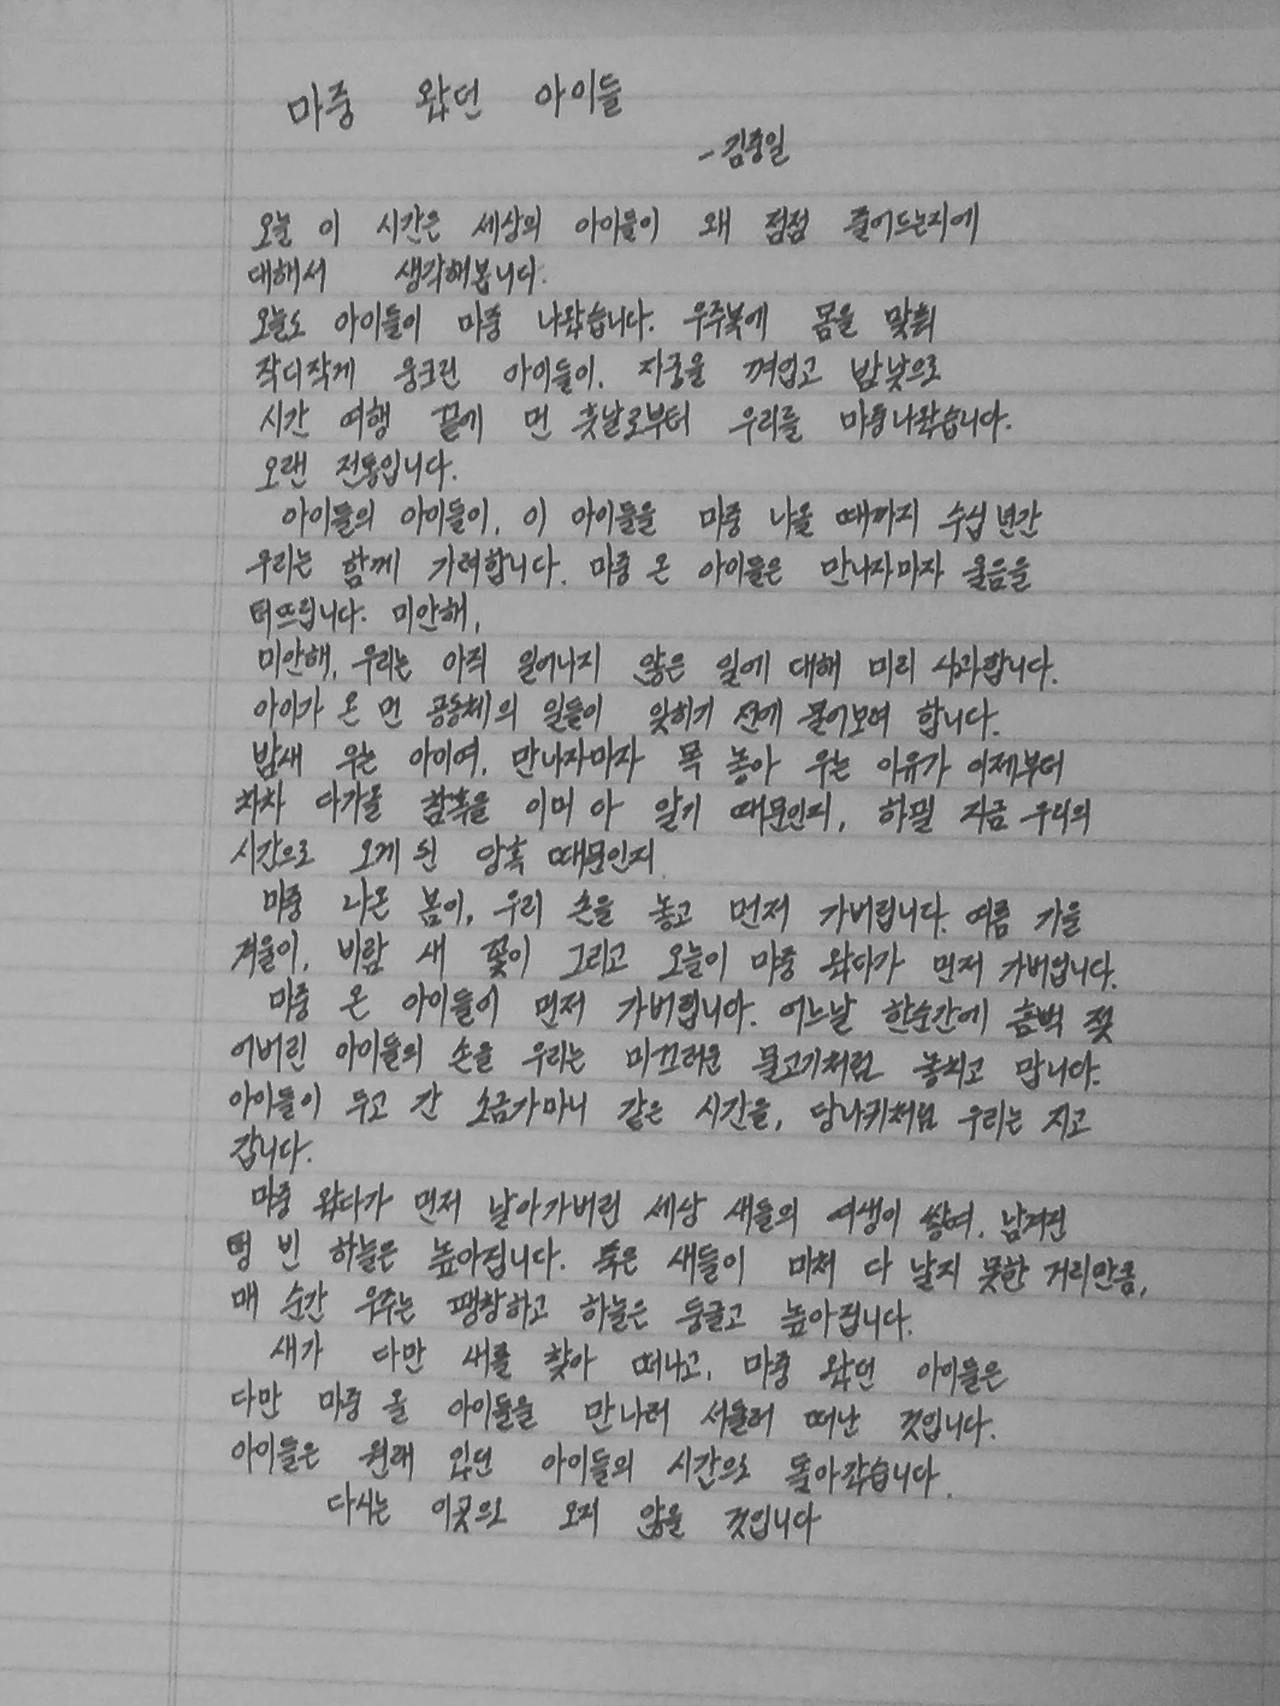 마중 왔던 아이들
- 김중일
오늘 이 시간은 세상의 아이들이 왜 점점 줄어드는지에
대해서 생각해봅니다.
오늘도 아이들이 마중 나왔습니다. 우주복에 몸을 맞춰
작디작게 웅크린 아이들이. 자궁을 껴입고 밤낮으로
시간 여행 끝에 먼 훗날로부터 우리를 마중나왔습니다.
오랜 전통입니다.
아이들의 아이들이, 이 아이들을 마중 나올 때까지 수십 년간
우리는 함께 기려합니다. 마중 온 아이들은 만나자마자 울음을
터뜨립니다. 미안해,
미안해, 우리는 아직 일어나지 않은 일에 대해 미리 사과합니다.
아이가 온 먼 공동체의 일들이 잊히기 전에 물어보려 합니다.
밤새 우는 아이여, 만나자마자 목 놓아 우는 이유가 이제부터
차차 다가올 암흑을 이미 다 알기 때문인지, 하필 지금 우리의
시간으로 오게 된 암흑 때문인지.
마중 나온 봄이, 우리 손을 놓고 먼저 가버립니다. 여름 가을
겨울이, 바람 새 꽃이 그리고 오늘이 마중 왔다가 먼저 가버립니다.
마중 온 아이들이 먼저 가버립니다. 어느날 한순간에 흠뻑 젖
어버린 아이들의 손을 우리는 미끄러운 물고기처럼 놓치고 맙니다.
아이들이 두고 간 소금가마니 같은 시간을, 당나귀처럼 우리는 지고
갑니다.
마중 왔다가 먼저 날아가버린 세상 새들의 여생이 쌓여, 남겨진
텅 빈 하늘은 높아집니다. 죽은 새들이 미처 다 날지 못한 거리만큼,
매 순간 우주는 팽창하고 하늘은 둥글고 높아집니다.
새가 다만 새를 찾아 떠나고, 마중 왔던 아이들은
다만 마중 올 아이들을 만나러 서둘러 떠난 것입니다.
아이들은 원래 있던 아이들의 시간으로 돌아갔습니다.
다시는 이곳으로 오지 않을 것입니다